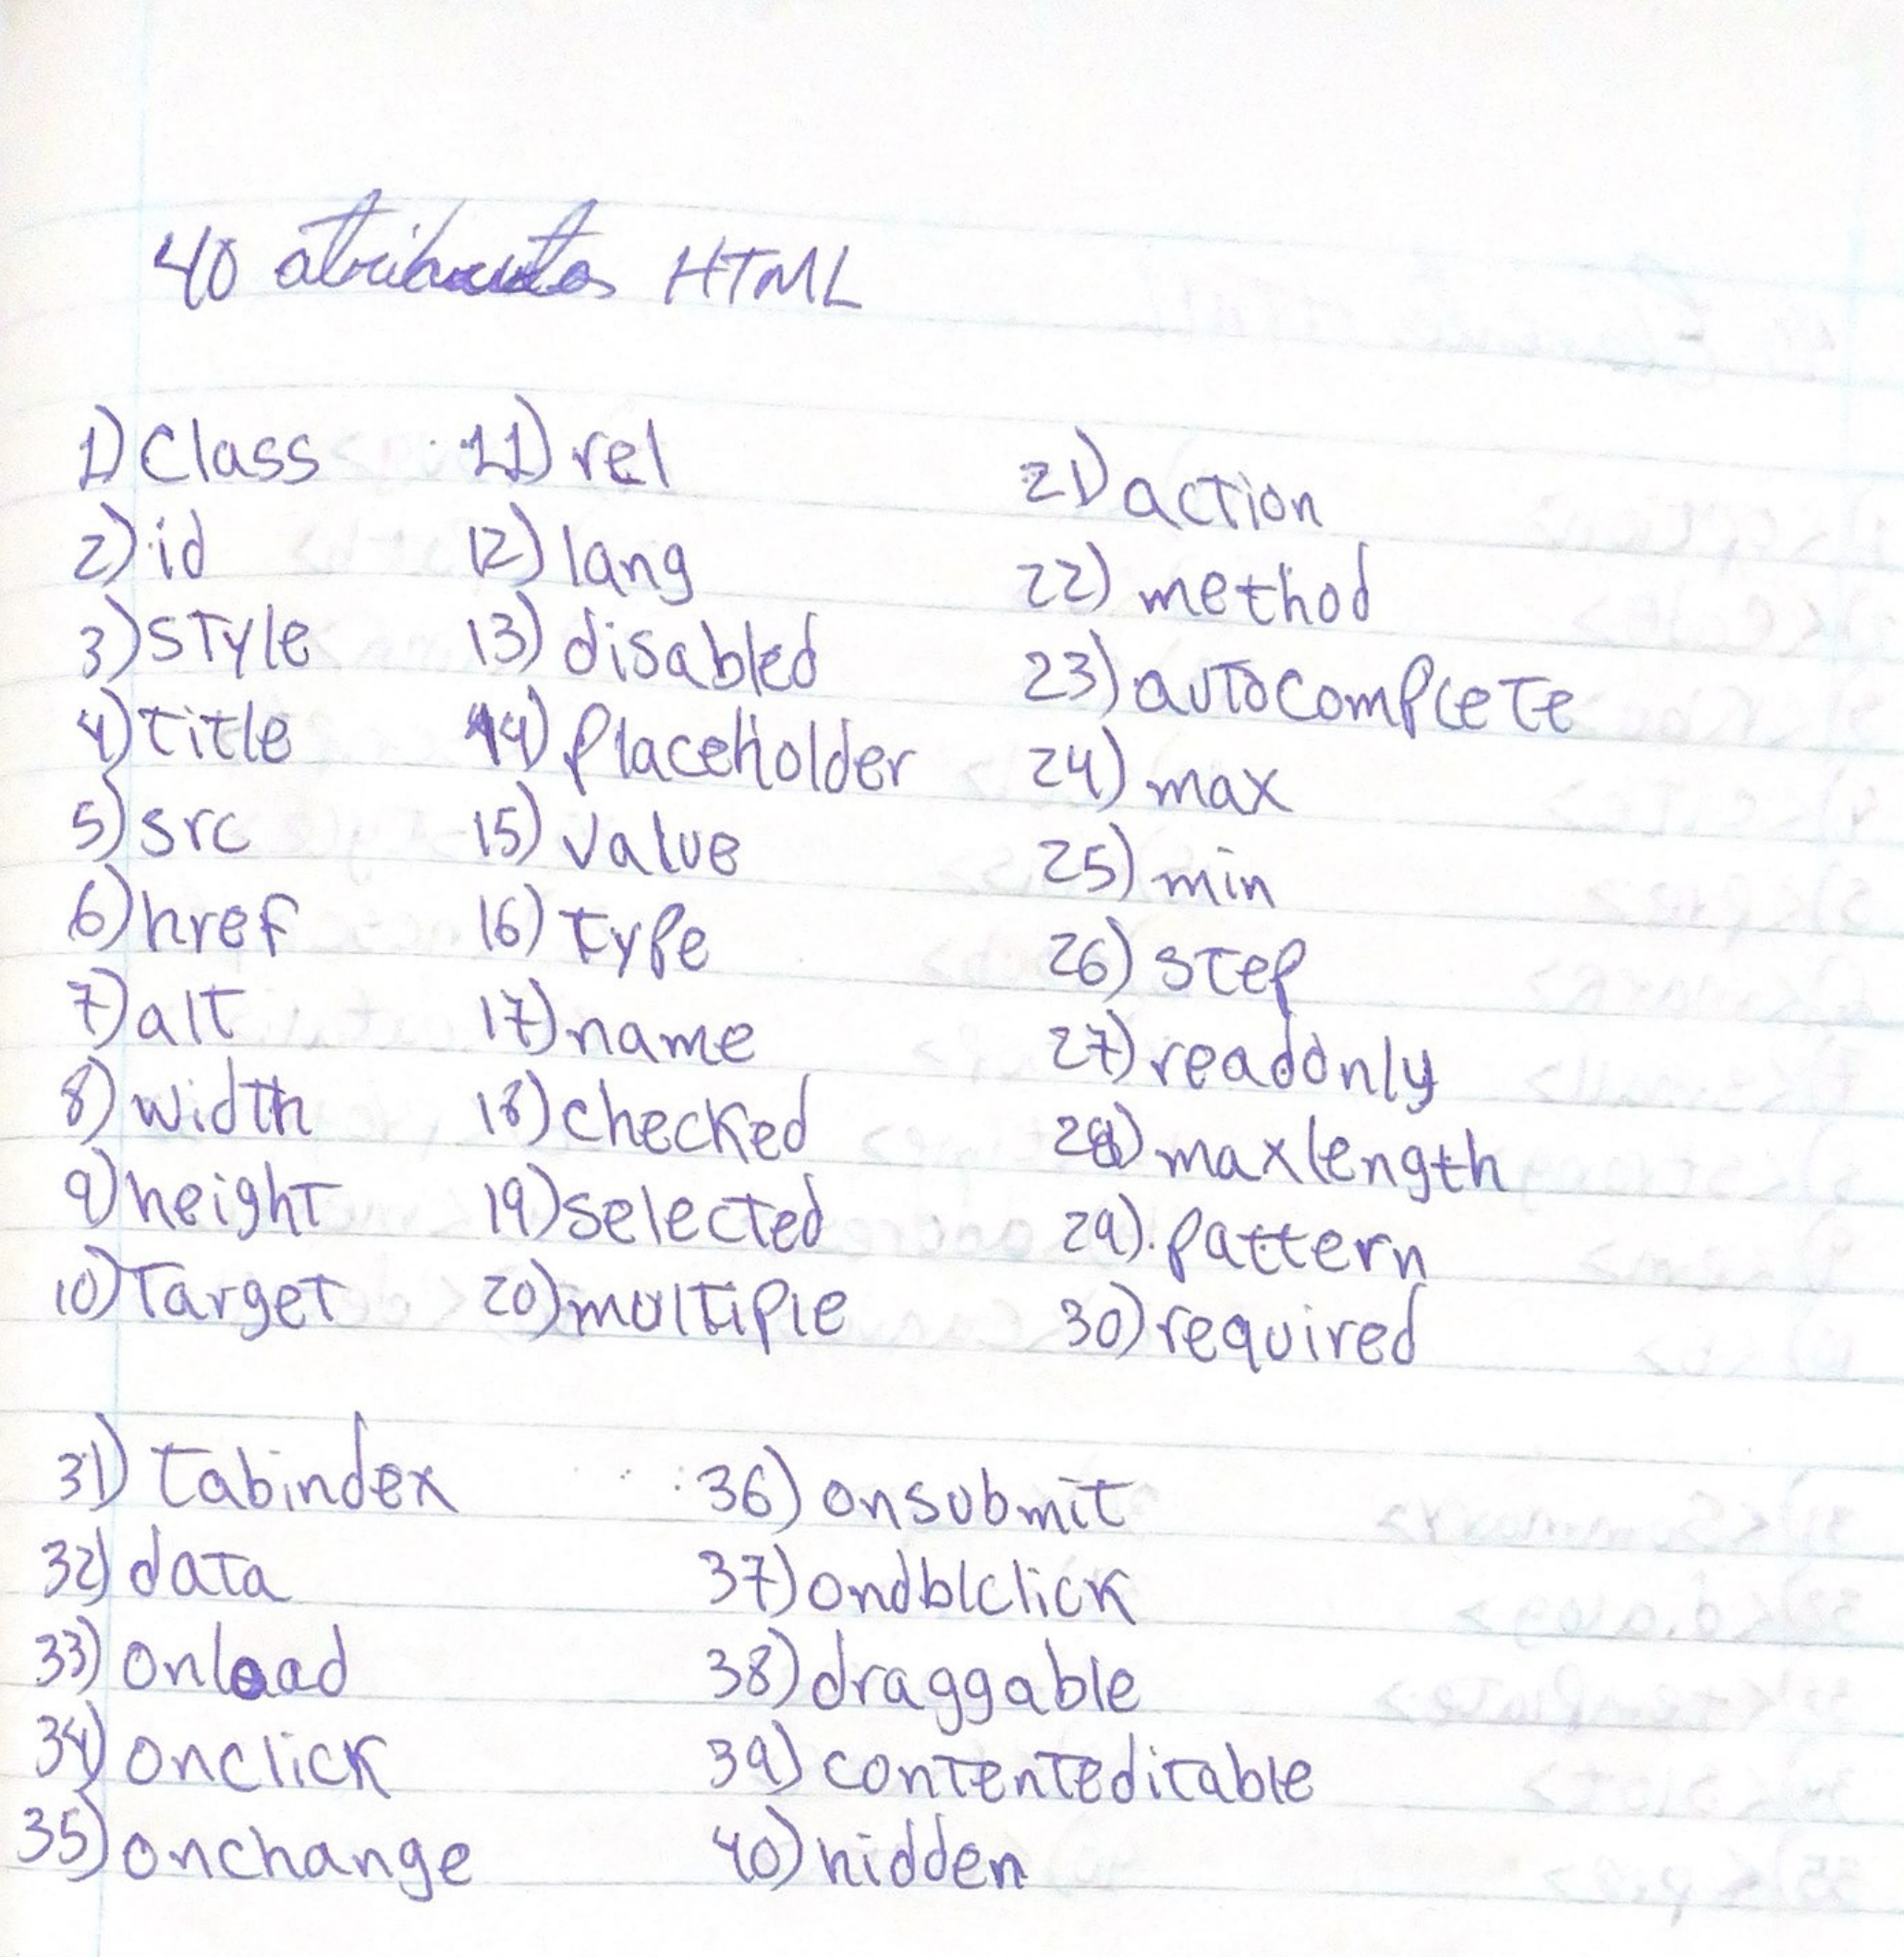 40 atributos HTML
1) Class
2) id
3) style
4) title
5) src
6) href
7) alt
8) width
9) height
10) Target
11) rel
12) lang
13) disabled
14) placeholder
15) value
16) type
17) name
18) checked
19) selected
20) multiple
21) action
22) method
23) autocomplete
24) max
25) min
26) step
27) readonly
28) maxlength
29) pattern
30) required
31) tabindex
32) data
33) onload
34) onclick
35) onchange
36) onsubmit
37) ondblclick
38) draggable
39) contenteditable
40) hidden